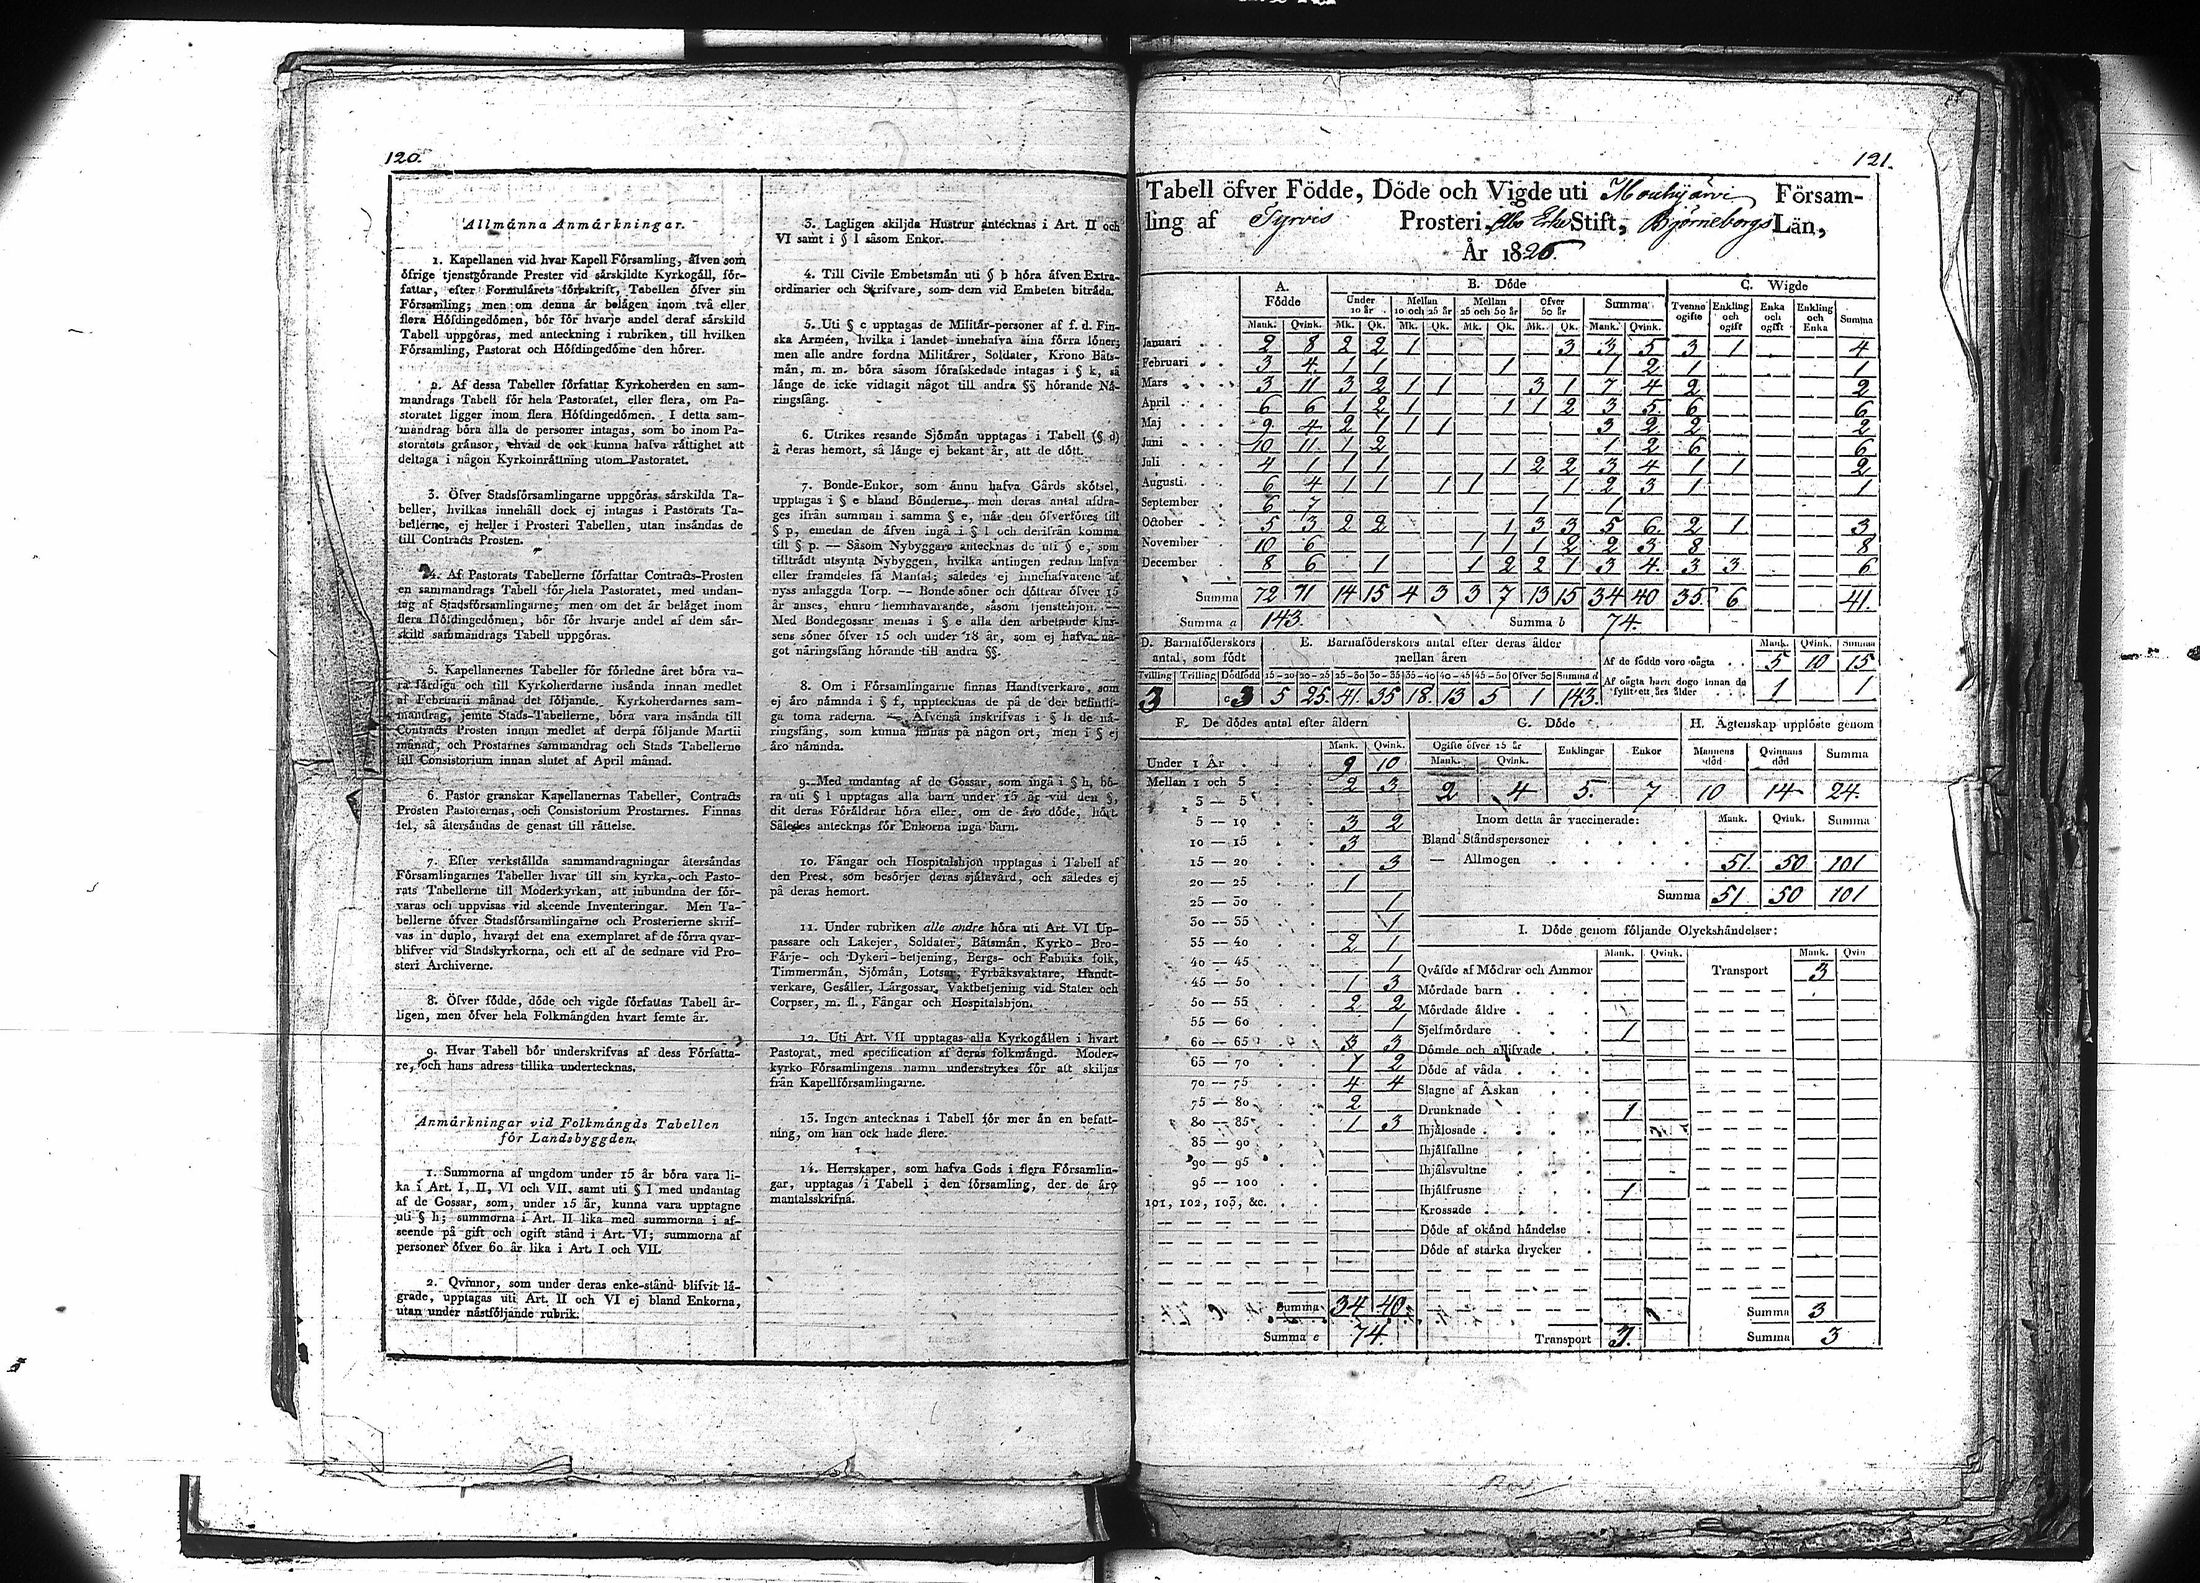 120.
Allmånna Anmårkningar.
1. Kapellanen vid hvar Kapell Församling, åfven som
öfrige tjenstgörande Prester vid sårskildte Kyrkogåll, för-
fattar, efter Formulårets förtskrift, Tabellen öfver sin
Församling; men om denna år belågen inom två eller
flera Höfdingedömen, bör för hvarje andel deraf sårskild
Tabell uppgöras, med anteckning i rubriken, till hvilken
Församling, Pastorat och Höfdingedöme den hörer.
2. Af dessa Tabeller författar Kyrkoherden en sam-
mandrags Tabell för hela Pastoratet, eller flera, om Pa-
storatet ligger inom flera Höfdingedömen. I detta sam-
mandrag böra alla de personer intagas, som bo inom Pa-
storatets grånsor, ehvad de ock kunna hafva råttighet att
deltaga i någon Kyrkoinråttning utom Pastoratet.
3. Öfver Stadsförsamlingarne uppgöras sårskilda Ta-
beller, hvilkas innehåll dock ej intagas i Pastorats Ta-
bellerne, ej heller i Prosteri Tabellen, utan insåndas de
till Contracts Prosten.
4. Af Pastorats Tabellerne författar Contracts-Prosten
en sammandrags Tabell för hela Pastoratet, med undan-
tag af Stadsförsamlingarne; men om det år belåget inom
flera Höfdingedömen, bör för hvarje andel af dem sår-
skild sammandrags Tabell uppgöras.
5. Kapellanernes Tabeller för förledne året böra va-
ra fårdiga och till Kyrkoherdarne insånda innan medlet
af Februarii månad det följande. Kyrkoherdarnes sam-
mandrag, jemte Stads-Tabellerne, böra vara insånda till
Contracts Prosten innan medlet af derpå följande Martii
månad, och Prostarnes sammandrag och Stads Tabellerne
till Consistorium innan slutet af April månad.
6. Pastor granskar Kapellanernas Tabeller, Contracts
Prosten Pastorernas, och Consistorium Prostarnes. Finnas
fel, så återsåndas de genast till råttelse.
7. Efter verkstållda sammandragningar återsåndas
Församlingarnes Tabeller hvar till sin kyrka, och Pasto-
rats Tabellerne till Moderkyrkan, att inbundna der för-
varas och uppvisas vid skeende Inventeringar. Men Ta-
bellerne öfver Stadsförsamlingarne och Prosterierne skrif-
vas in duplo, hvaraf det ena exemplaret af de förra qvar-
blifver vid Stadskyrkorna, och ett af de sednare vid Pro-
steri Archiverne.
8. Öfver födde, döde och vigde författas Tabell år-
ligen, men öfver hela Folkmångden hvart femte år.
9. Hvar Tabell bör underskrifvas af dess Författa-
re, och hans adress tillika undertecknas.
Anmårkningar vid Folkmångds Tabellen
för Landsbyggden.
1. Summorna af ungdom under 15 år böra vara li-
ka i Art. I, II, VI och VII, samt uti § l med undantag
af de Gossar, som, under 15 år, kunna vara upptagne
uti § h; summorna i Art. II lika med summorna i af-
seende på gift och ogift stånd i Art. VI; summorna af
personer öfver 60 år lika i Art. I och VII.
2. Qvinnor, som under deras enke-stånd blifvit lå-
grade, upptagas uti Art. II och VI ej bland Enkorna,
utan under nåstföljande rubrik.
3. Lagligen skiljda Hustrur antecknas i Art. II och
VI samt i § l såsom Enkor.
4. Till Civile Embetsmån uti § b höra åfven Extra-
ordinarier och Skrifvare, som dem vid Embeten bitråda.
5. Uti § c upptagas de Militår-personer af f. d. Fin-
ska Arméen, hvilka i landet innehafva sina förra löner;
men alle andre fordna Militårer, Soldater, Krono Båts-
mån, m. m. böra såsom förafskedade intagas i § k, så
långe de icke vidtagit något till andra §§ hörande Nå-
ringsfång.
6. Utrikes resande Sjömån upptagas i Tabell (§ d)
å deras hemort, så långe ej bekant år, att de dött.
7. Bonde-Enkor, som ånnu hafva Gårds skötsel,
upptagas i § e bland Bönderne, men deras antal afdra-
ges ifrån summan i samma § e, når den öfverföres till
§ p, emedan de åfven ingå i § l och derifrån komma
till § p. — Såsom Nybyggare antecknas de uti § e, som
tilltrådt utsynta Nybyggen, hvilka antingen redan hafva
eller framdeles få Mantal; således ej innehafvarene af
nyss anlaggda Torp. — Bonde söner och döttrar öfver 15
år anses, ehuru hemmavarande, såsom tjenstehjon. —
Med Bondegossar menas i § e alla den arbetande klas-
sens söner öfver 15 och under 18 år, som ej hafva nå-
got nåringsfång hörande till andra §§.
8. Om i Församlingarne finnas Handtverkare, som
ej åro nåmnda i § f, upptecknas de på de der befintli-
ga toma raderna. — Åfvenså inskrifvas i § h de nå-
ringsfång, som kunna finnas på någon ort, men i § ej
åro nåmnda.
9. Med undantag af de Gossar, som ingå i § h, bö-
ra uti § l upptagas alla barn under 15 år vid den §,
dit deras Föråldrar höra eller, om de åro döde, hört.
Således antecknas för Enkorna inga barn.
10. Fångar och Hospitalshjon upptagas i Tabell af
den Prest, som besörjer deras sjålavård, och således ej
på deras hemort.
11. Under rubriken alle andre höra uti Art. VI Up-
passare och Lakejer, Soldater, Båtsmån, Kyrko- Bro-
Fårje- och Dykeri-betjening, Bergs- och Fabriks folk,
Timmermån, Sjömån, Lotsar, Fyrbåksvaktare, Handt-
verkare, Gesåller, Lårgossar, Vaktbetjening vid Stater och
Corpser, m. fl., Fångar och Hospitalshjon.
12. Uti Art. VII upptagas alla Kyrkogållen i hvart
Pastorat, med specification af deras folkmångd. Moder-
kyrko Församlingens namn understrykes för att skiljas
från Kapellförsamlingarne.
13. Ingen antecknas i Tabell för mer ån en befatt-
ning, om han ock hade flere.
14. Herrskaper, som hafva Gods i flera Församlin-
gar, upptagas i Tabell i den församling, der de åro
mantalsskrifna.
121.
Tabell öfver Födde, Döde och Vigde uti Mouhijärvi Försam-
ling af Tyrvis Prosteri, Åbo Erke Stift, Björneborgs Län,
År 1825.
A. Födde B. Döde C. Wigde
Under 10 år Mellan 10 och 25 år Mellan 25 och 50 år Öfver 50 år Summa Tvenne ogifte Enkling och ogift Enka och ogift Enkling och Enka Summa
Mank. Qvink. Mk. Qk. Mk. Qk. Mk. Qk. Mk. Qk. Mank. Qvink.
Januari 2 8 2 2 1 3 3 5 3 1 4
Februari 3 4 1 1 1 1 2 1 1
Mars 3 11 3 2 1 1 3 1 7 4 2 2
April 6 6 1 2 1 1 1 2 3 5 6 6
Maj 9 4 2 1 1 1 3 2 2 2
Juni 10 11 1 2 1 2 6 6
Juli 4 1 1 1 1 2 2 3 4 1 1 2
Augusti 6 4 1 1 1 1 1 2 3 1 1
September 6 7 1 1
October 5 3 2 2 1 3 3 5 6 2 1 3
November 10 6 1 1 1 2 2 3 8 8
December 8 6 1 1 2 2 1 3 4 3 3 6
Summa 72 71 14 15 4 3 3 7 13 15 34 40 35 6 41.
Summa a 143. Summa b 74.
D. Barnaföderskors antal, som födt
Tvilling Trilling Dödfödd
3 3
E. Barnaföderskors antal efter deras ålder mellan åren
15—20 20—25 25—30 30—35 35—40 40—45 45—50 öfver 50 Summa d
5 25. 41. 35 18. 13 5 1 143.
Mank. Qvink. Summa
Af de födde voro oågta 5 10 15
Af oågta barn dogo innan de fyllt ett års ålder 1 1
F. De dödes antal efter åldern
Mank. Qvink.
Under 1 År 9 10
Mellan 1 och 3 2 3
3 — 5
5 — 10 3 2
10 — 15 3
15 — 20 3
20 — 25 1
25 — 30 1
30 — 35 1
35 — 40 2 1
40 — 45 1
45 — 50 1 3
50 — 55 2 2
55 — 60 1
60 — 65 3 3
65 — 70 1 2
70 — 75 4 4
75 — 80 2
80 — 85 1 3
85 — 90
90 — 95
95 — 100
101, 102, 103, &c.
Summa 34 40
Summa e 74.
G. Döde
Ogifte öfver 15 år Enklingar Enkor
Mank. Qvink.
2 4 5. 7
H. Ågtenskap upplöste genom
Mannens död Qvinnans död Summa
10 14 24.
Inom detta år vaccinerade: Mank. Qvink. Summa
Bland Ståndspersoner
— Allmogen 51. 50 101
Summa 51. 50 101
I. Döde genom följande Olyckshåndelser:
Mank. Qvink. Mank. Qvin
Qvåfde af Mödrar och Ammor Transport 3
Mördade barn
Mördade åldre
Sjelfmördare 1
Dömde och aflifvade
Döde af våda
Slagne af Åskan
Drunknade 1
Ihjålosade
Ihjålfallne
Ihjålsvultne
Ihjålfrusne 1
Krossade
Döde af okånd håndelse
Döde af starka drycker
Summa 3
Transport 3. Summa 3